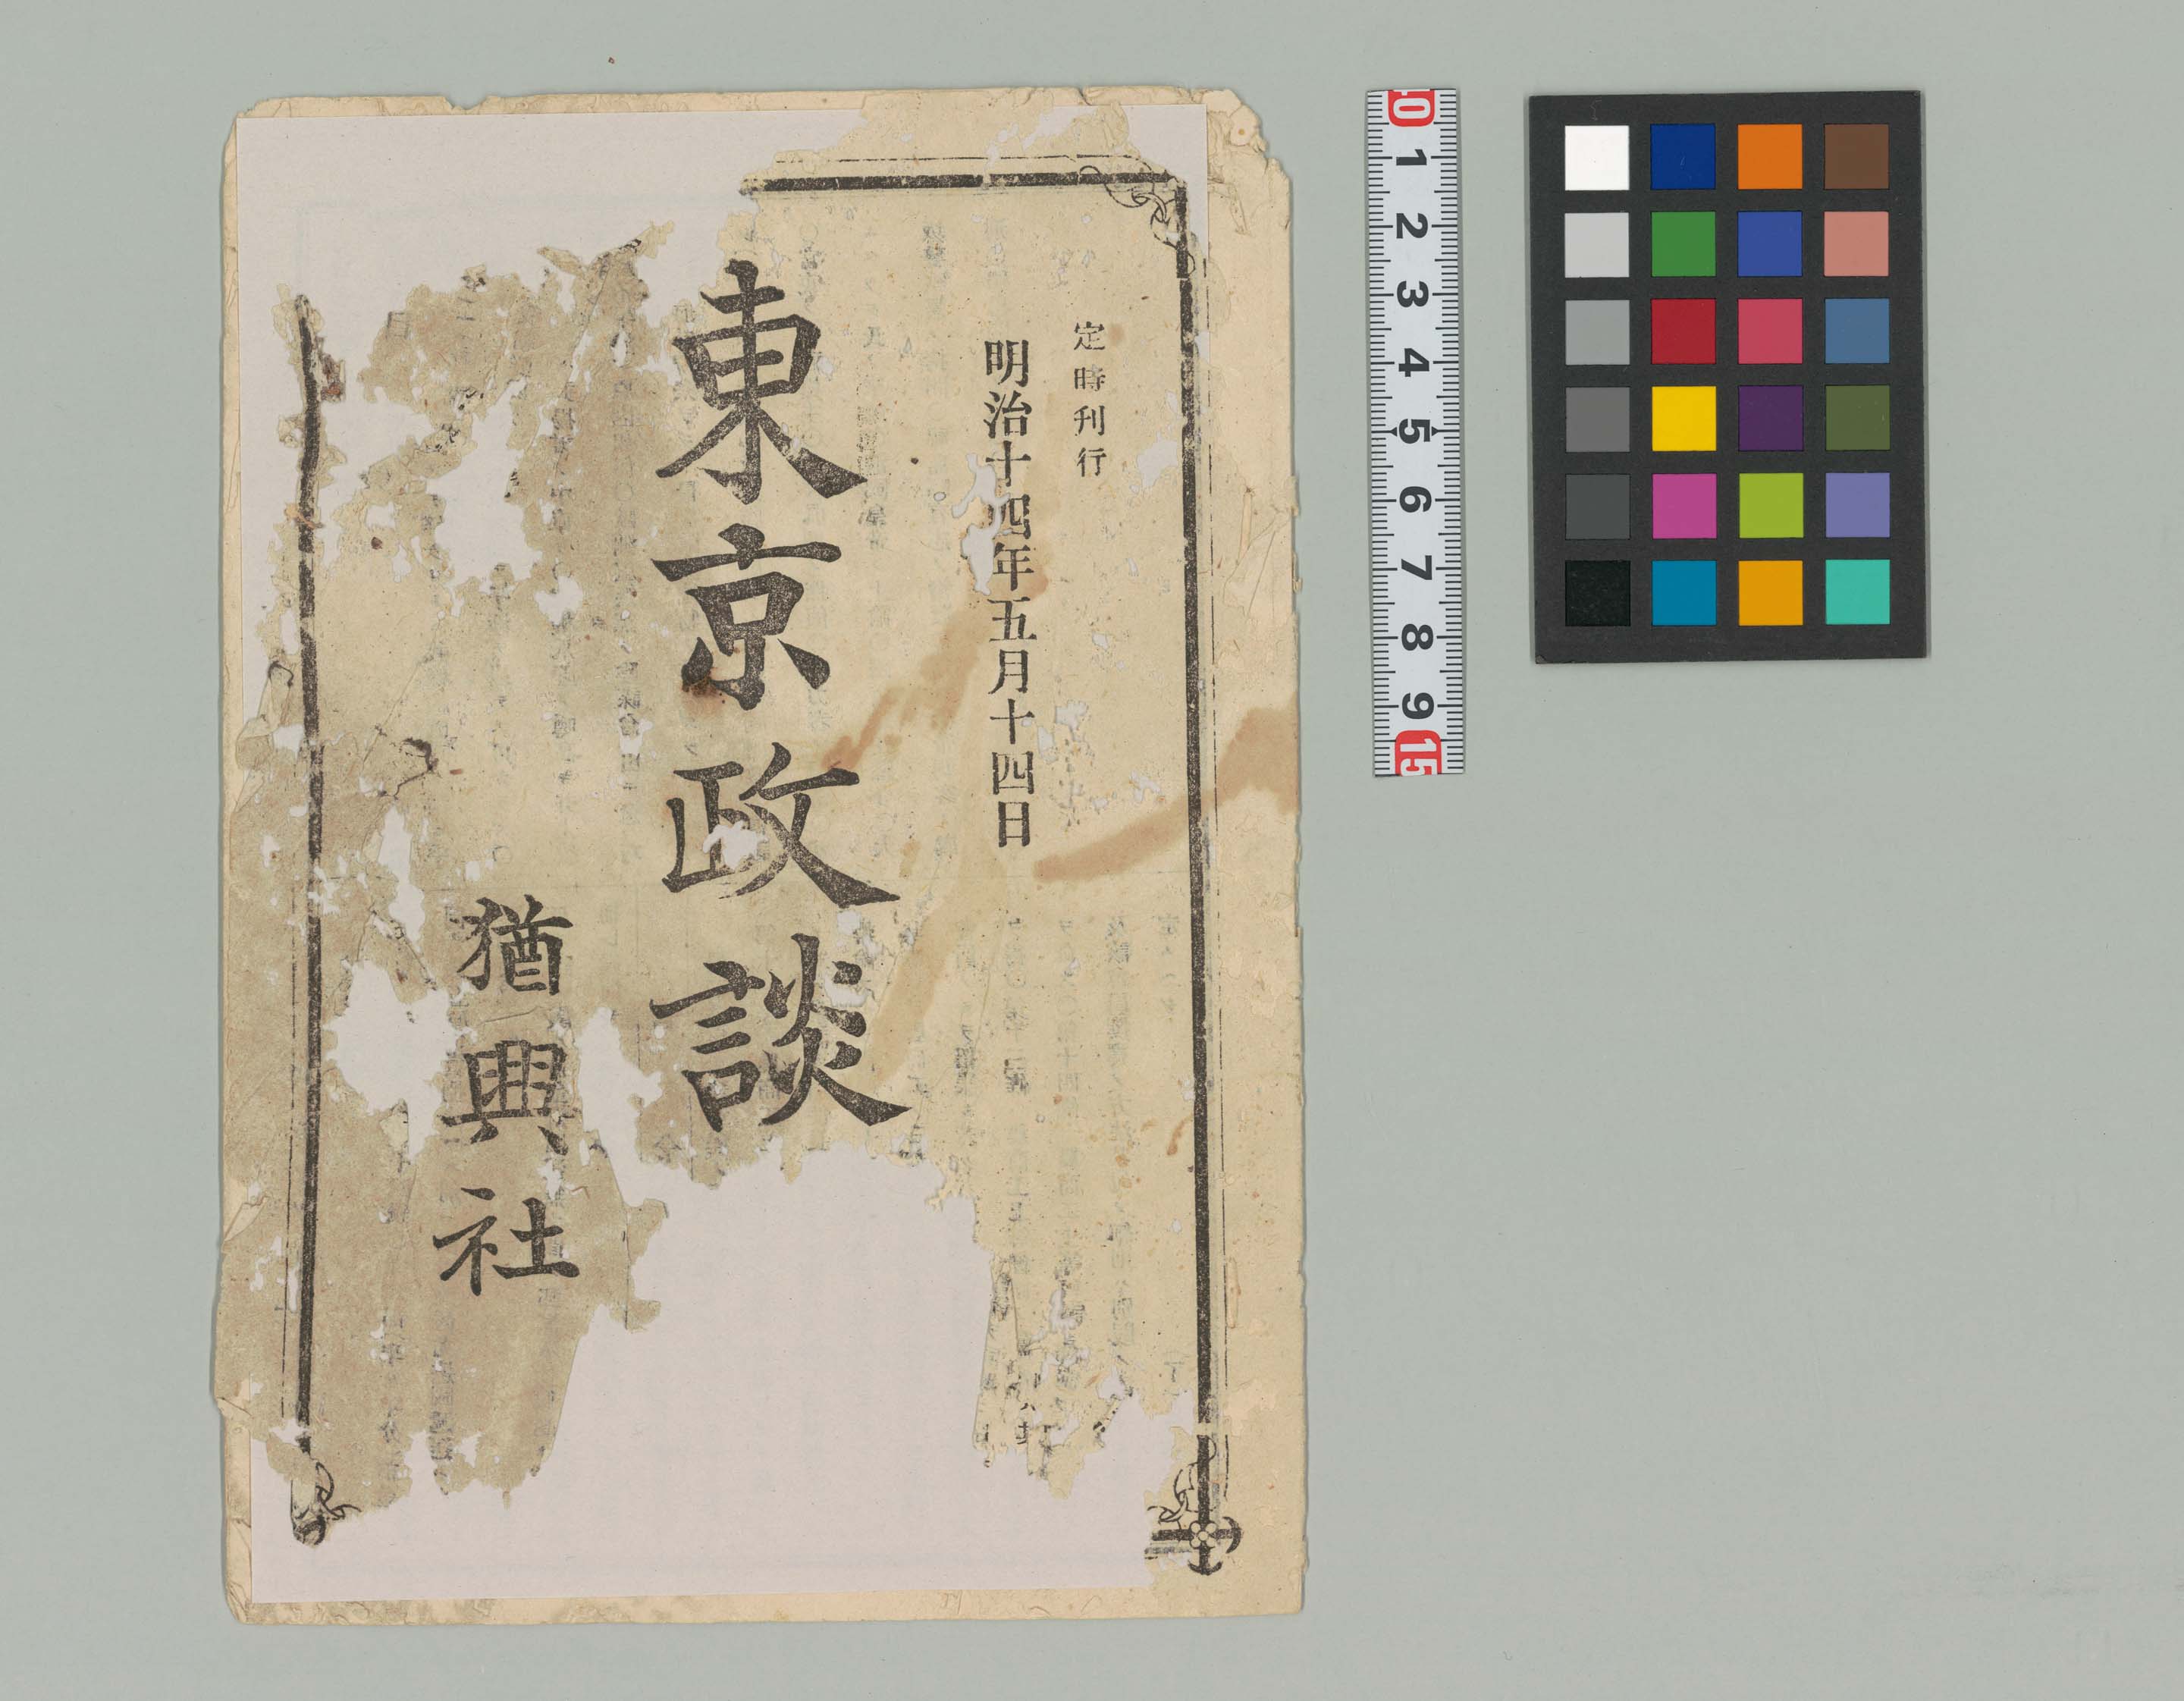 定時刊行
明治十四年五月十四日
東京政談
猶興社
10
1
2
3
4
5
6
7
8
9
15